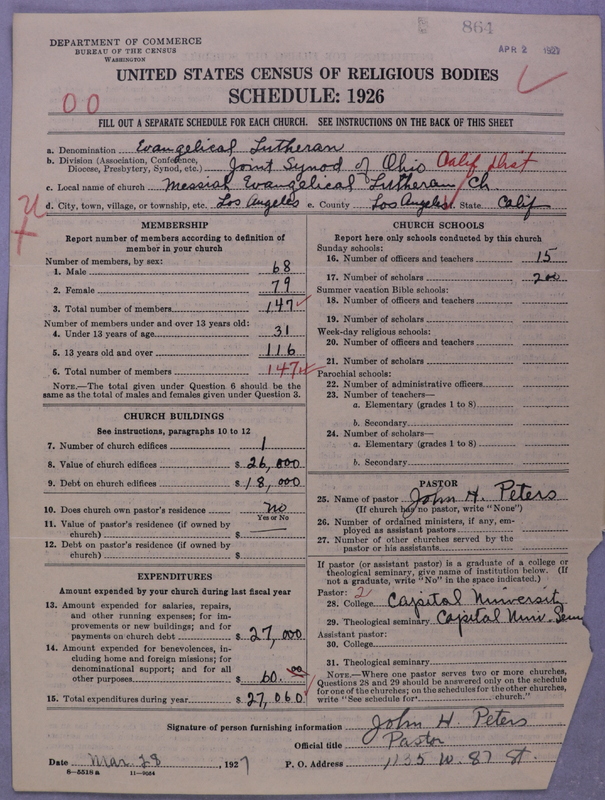 864
APR 2 1927
DEPARTMENT OF COMMERCE
BUREAU OF THE CENSUS
WASHINGTON
UNITED STATES CENSUS OF RELIGIOUS BODIES
SCHEDULE: 1926
00
FILL OUT A SEPARATE SCHEDULE FOR EACH CHURCH. SEE INSTRUCTIONS ON THE BACK OF THIS SHEET
a. Denomination Evangelical Lutheran
b. Division (Association, Conference, Diocese, Presbytery, Synod, etc.) Joint Synod of Ohio Calif Dist
c. Local name of church Messiah Evangelical Lutheran Ch
d. City, town, village, or township, etc. Los Angeles e. County Los Angeles f. State Calif
MEMBERSHIP
Report number of members according to definition of
member in your church
Number of members, by sex:
1. Male 68
2. Female 79
3. Total number of members 147
Number of members under and over 13 years old:
4. Under 13 years of age 31
5. 13 years old and over 116
6. Total number of members 147
NOTE.—The total given under Question 6 should be the
same as the total of males and females given under Question 3.
CHURCH BUILDINGS
See instructions, paragraphs 10 to 12
7. Number of church edifices 1
8. Value of church edifices $ 26,000
9. Debt on church edifices $ 18,000
10. Does church own pastor's residence no
Yes or No
11. Value of pastor's residence (if owned by
church) $
12. Debt on pastor's residence (if owned by
church) $
EXPENDITURES
Amount expended by your church during last fiscal year
13. Amount expended for salaries, repairs,
and other running expenses; for im-
provements or new buildings; and for
payments on church debt $ 27,000
14. Amount expended for benevolences, in-
cluding home and foreign missions; for
denominational support; and for all
other purposes $ 60.00
15. Total expenditures during year $ 27,060
CHURCH SCHOOLS
Report here only schools conducted by this church
Sunday schools:
16. Number of officers and teachers 15
17. Number of scholars 200
Summer vacation Bible schools:
18. Number of officers and teachers
19. Number of scholars
Week-day religious schools:
20. Number of officers and teachers
21. Number of scholars
Parochial schools:
22. Number of administrative officers
23. Number of teachers—
a. Elementary (grades 1 to 8)
b. Secondary
24. Number of scholars—
a. Elementary (grades 1 to 8)
b. Secondary
PASTOR
25. Name of pastor John H. Peters
(If church has no pastor, write "None")
26. Number of ordained ministers, if any, em-
ployed as assistant pastors
27. Number of other churches served by the
pastor or his assistants
If pastor (or assistant pastor) is a graduate of a college or
theological seminary, give name of institution below. (If
not a graduate, write "No" in the space indicated.)
Pastor: 2
28. College Capital University
29. Theological seminary Capital Univ. Sem
Assistant pastor:
30. College
31. Theological seminary
NOTE.—Where one pastor serves two or more churches,
Questions 28 and 29 should be answered only on the schedule
for one of the churches; on the schedules for the other churches,
write "See schedule for church."
Signature of person furnishing information John H Peters
Official title Pastor
Date Mar 28, 1927 P. O. Address 1135 W. 87 St.
8—5518 a 11—9684